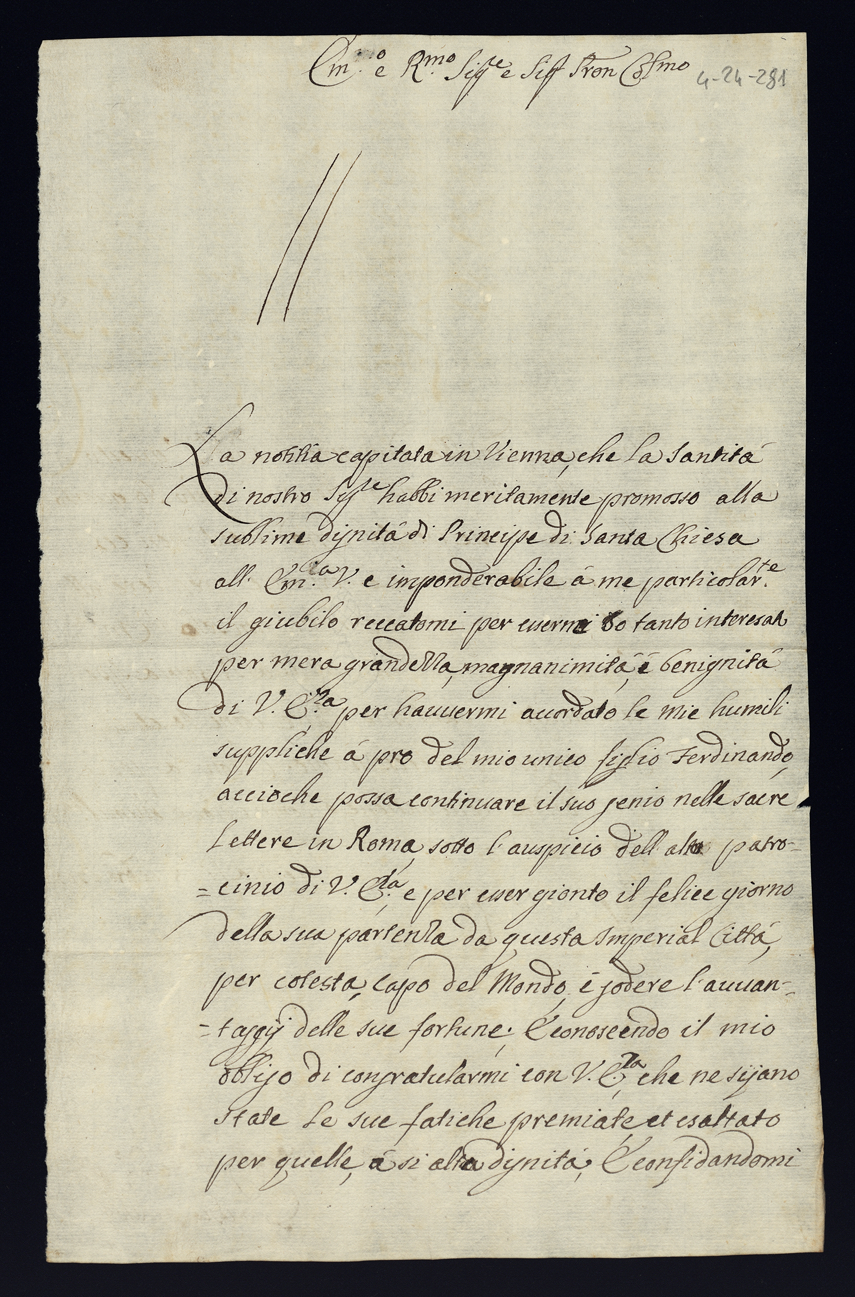 Em.º e R.mo Sig.e e Sig Pron Col.mo 4-24-281
La notitia capitata in Vienna, che la Santitá
di nostro Sig.re habbi meritamente promosso alla
sublime dignitá di Principe di Santa Chiesa
all. Em.za V. e imponderabile á me particolar.te
il giubilo reccatomi per essermi Io tanto interesat
per mera grandezza, magnanimitá, é benignitá
di V. E.za per hauuermi acordato le mie humili
suppliche á pro del mio unico figlio Ferdinando,
accioche possa continuare il suo genio nelle sacre
Lettere in Roma, sotto l'auspicio dell'alto patro-
=cinio di V. E.za, e per esser gionto il felice giorno
della sua partenza da questa Imperial Cittá,
per cotesta, capo del Mondo, é godere l'auuan-
=taggij delle sue fortune; E conoscendo il mio
obligo di congratularmi con V. E.za, che ne sijano
state le sue fatiche premiate, et esaltato
per quelle, á si alta dignitá; E confidandomi